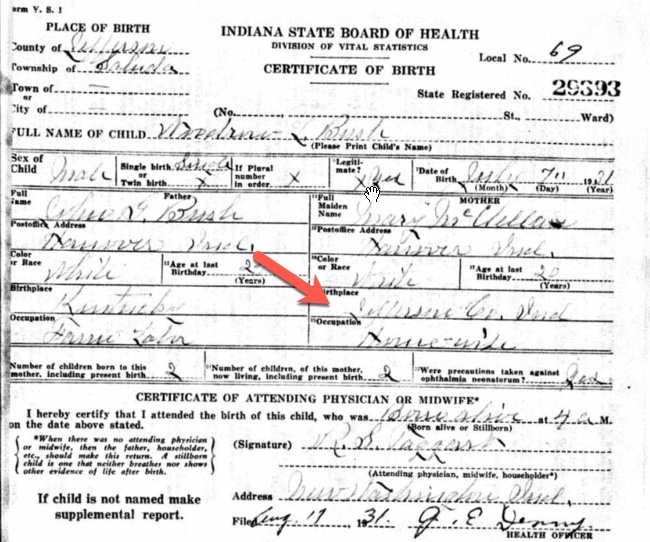 orm V. S. 1
PLACE OF BIRTH
County of Jefferson
Township of Saluda
Town of —
or
City of
INDIANA STATE BOARD OF HEALTH
DIVISION OF VITAL STATISTICS
CERTIFICATE OF BIRTH
Local No. 69
State Registered No. 29393
(No. St., Ward)
FULL NAME OF CHILD Woodrow L. Bush
(Please Print Child's Name)
Sex of Child Male
Single birth Single or Twin birth X
If Plural number in order. X
Legiti-mate? X yes
Date of Birth July 7 1931
(Month) (Day) (Year)
Father
Full Name Bush
MOTHER
Full Maiden Name Mary McClellan
Postoffice Address Hanover Ind.
Postoffice Address Hanover Ind.
Color or Race White
Age at last Birthday (Years)
Color or Race White
Age at last Birthday 20 (Years)
Birthplace Kentucky
Birthplace Jefferson Co. Ind
Occupation Farm Labor
Occupation House-wife
Number of children born to this mother, including present birth 2
Number of children, of this mother, now living, including present birth 2
Were precautions taken against ophthalmia neonatorum? yes
CERTIFICATE OF ATTENDING PHYSICIAN OR MIDWIFE*
I hereby certify that I attended the birth of this child, who was Born alive at 4 a M.
on the date above stated. (Born alive or Stillborn)
*When there was no attending physician
or midwife, then the father, householder,
etc., should make this return. A stillborn
child is one that neither breathes nor shows
other evidence of life after birth.
(Signature) Taggart
(Attending physician, midwife, householder*)
If child is not named make
supplemental report.
Address New Washington Ind.
Filed Aug. 17 1931. J. E. Denny
HEALTH OFFICER